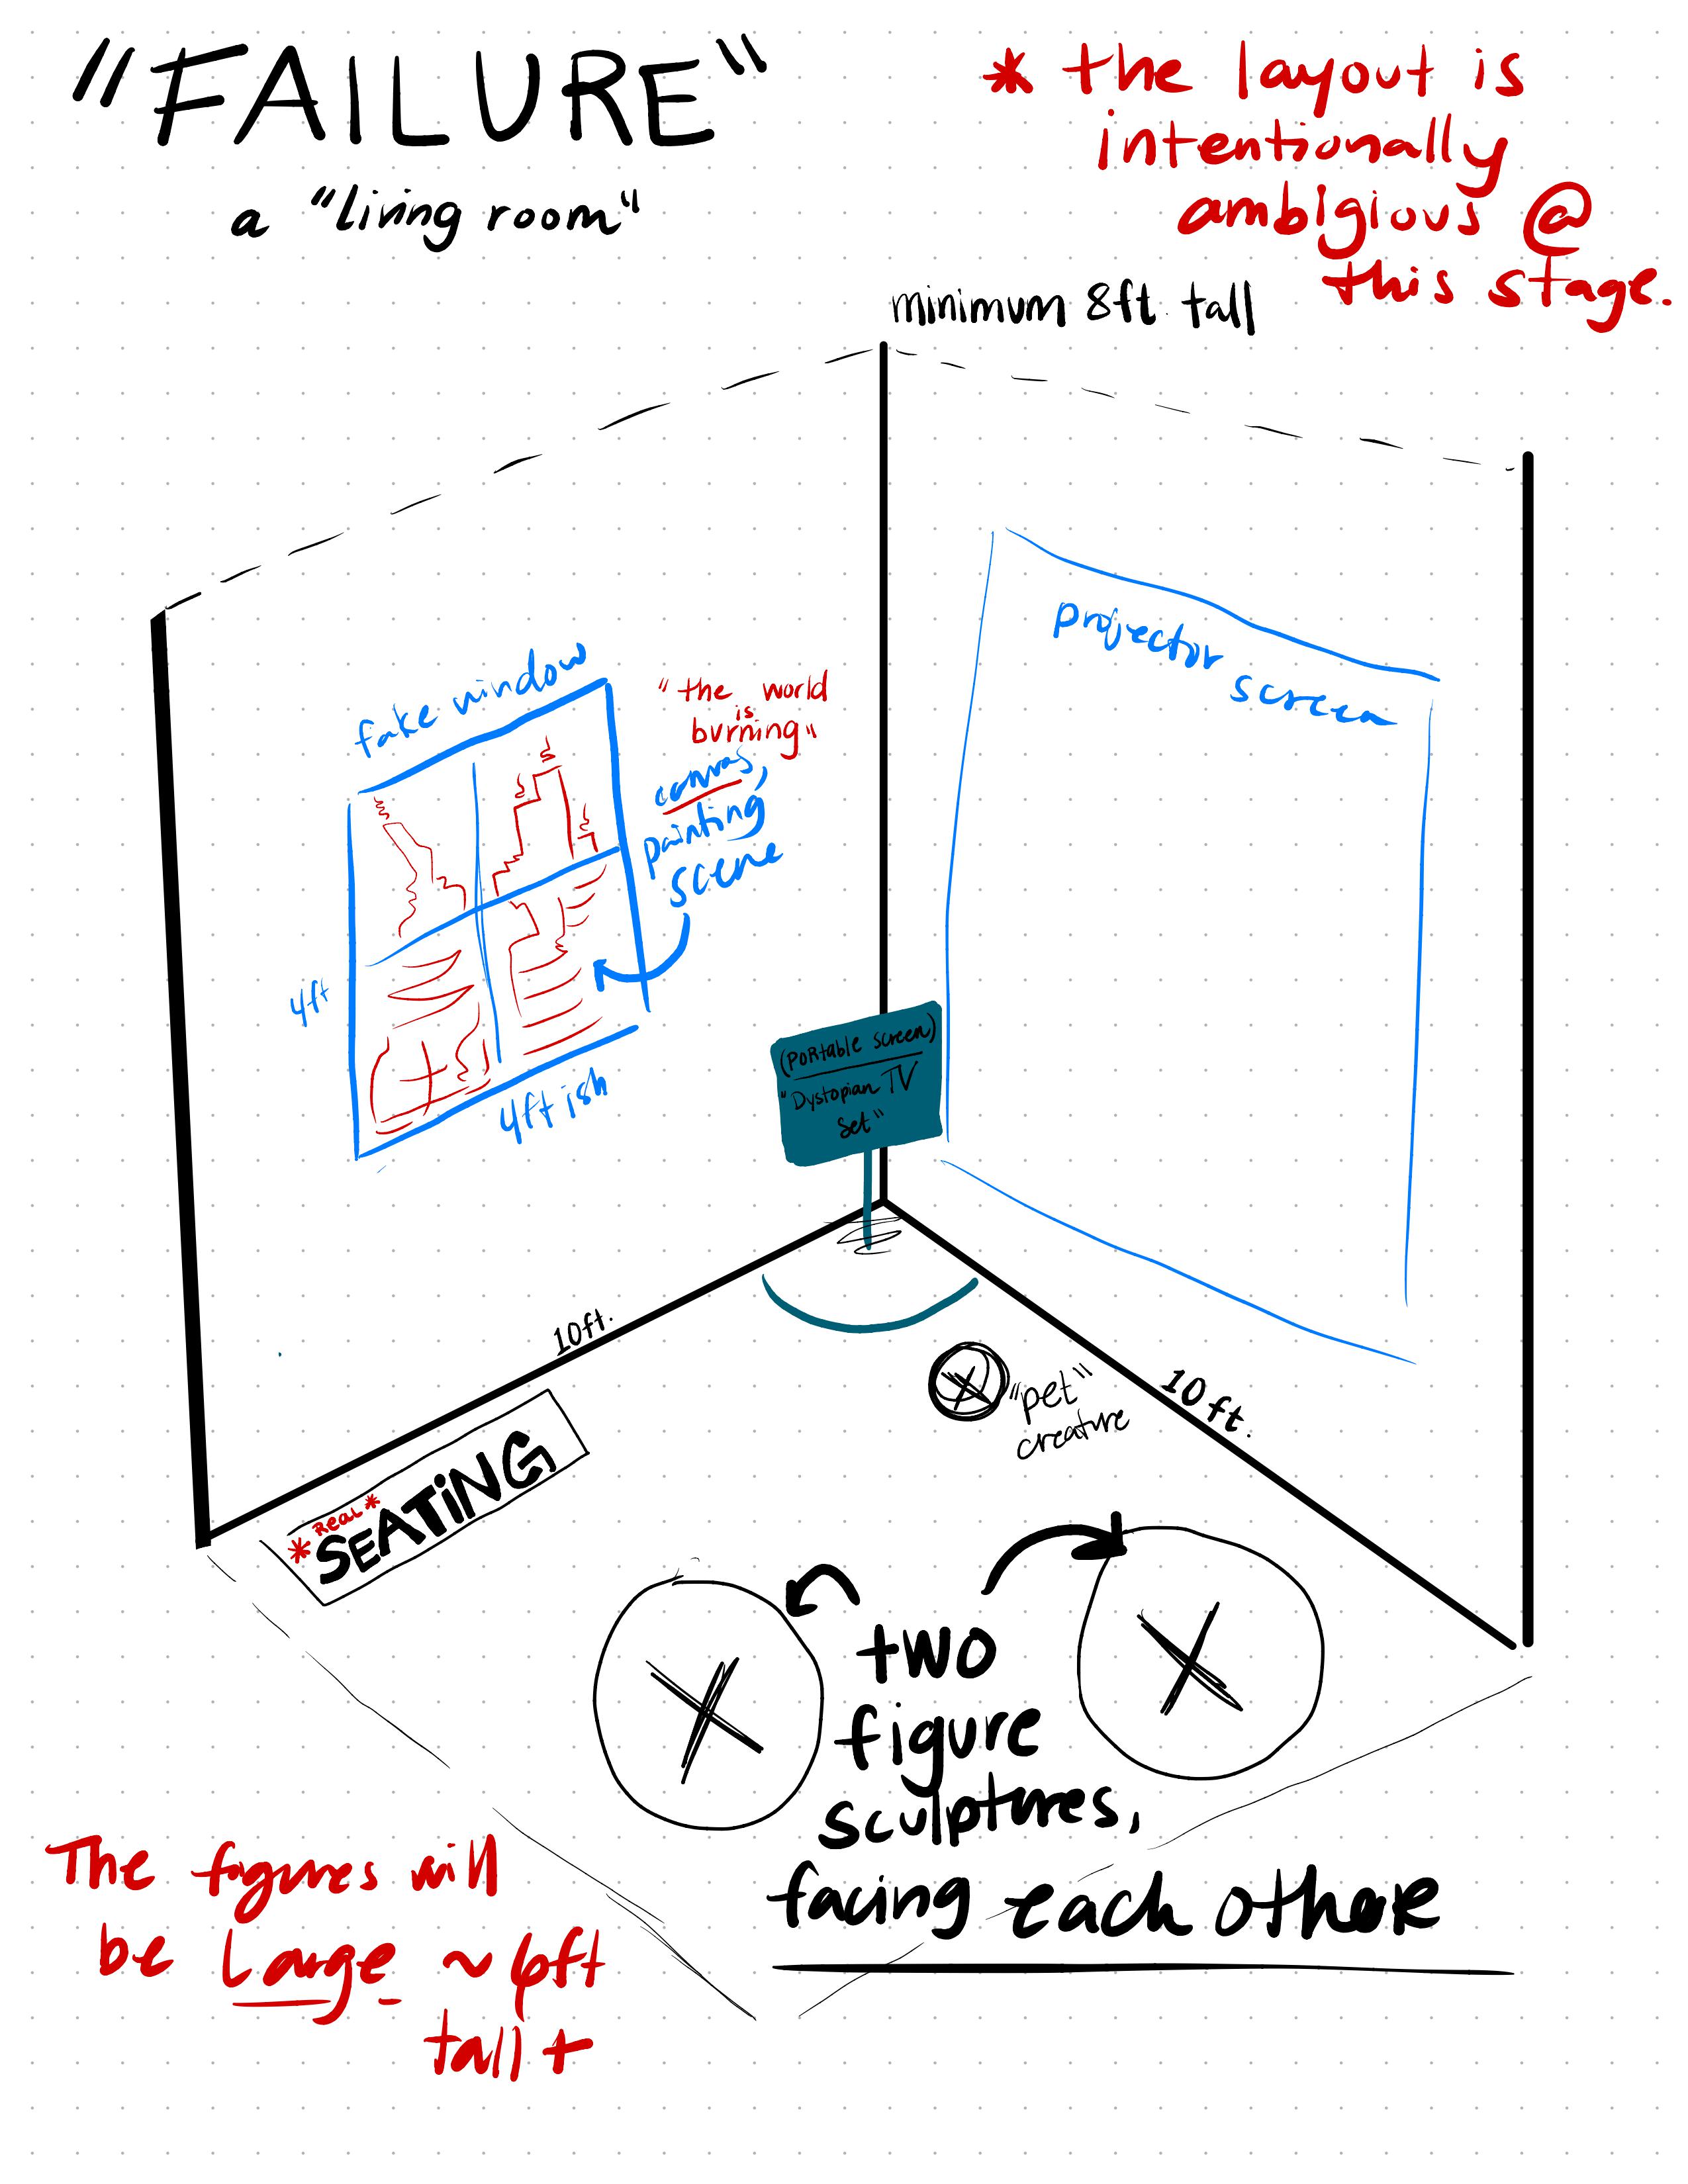 "FAILURE"
a "living room"
* the layout is
intentionally
ambigious @
this stage.
minimum 8ft tall
fake window
"the world
is
burning"
canvas,
painting
scene
4ft
4ft ish
projector
screen
(PORtable screen)
"Dystopian TV
Set"
10ft.
10ft.
"pet"
creature
*REAL*
SEATiNG
two
figure
sculptures,
facing each other
The figures will
be Large ~6ft
tall +